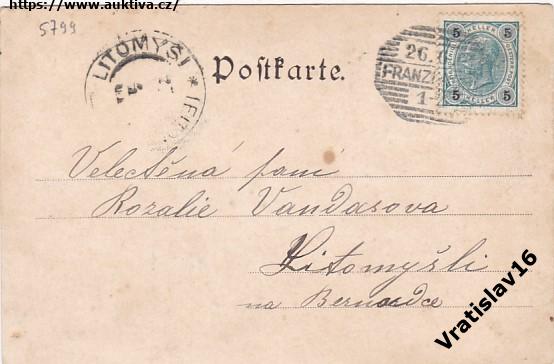 https://www.auktiva.cz/
5799
LITOMYŠL
Postkarte.
26.
FRANZ
1-
5 HELLER 5
5 HELLER 5
Velectěná paní
Rozalie Vandasova
Litomyšli
na Bernardce
Vratislav16